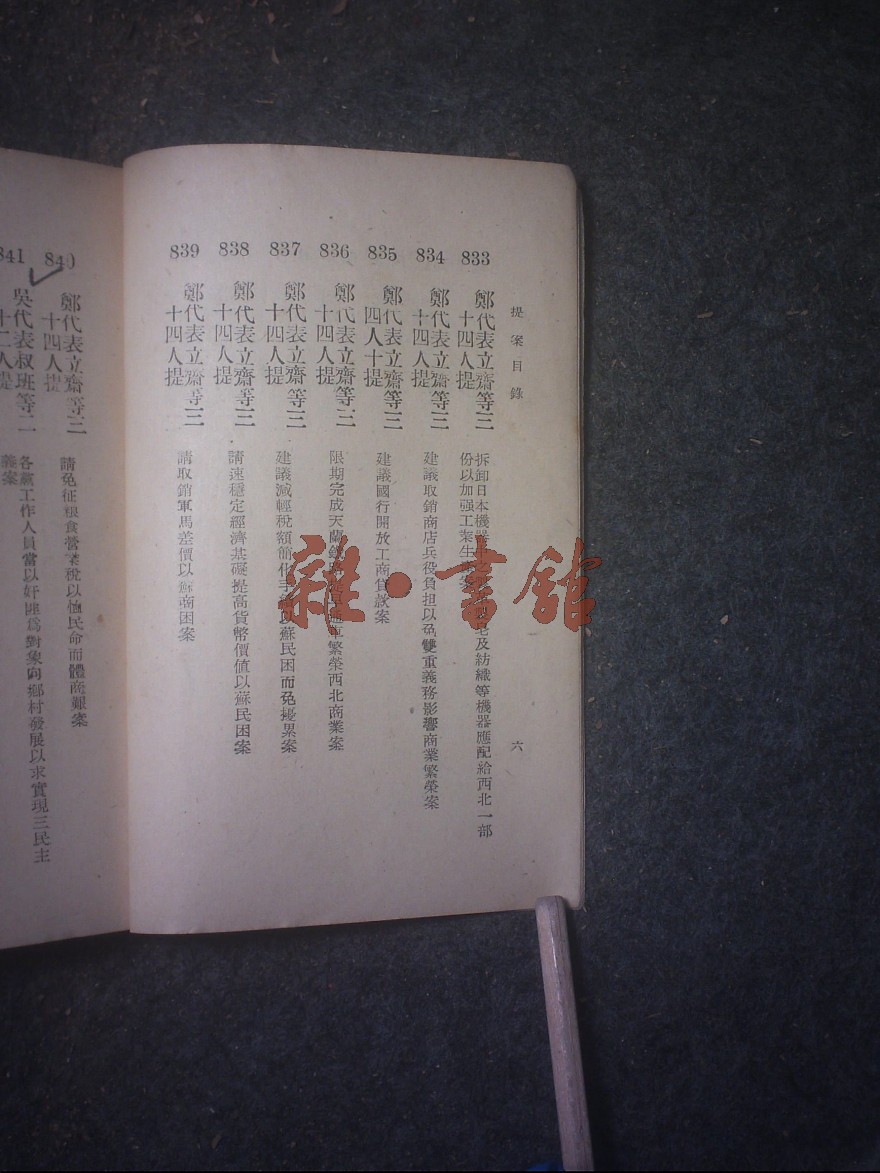 提案目錄
六
833
鄭代表立齋等三
十四人提
拆卸日本機器 及紡織等機器應配給西北一部
份以加强工
834
鄭代表立齋等三
十四人提
建議取銷商店兵役負担以免雙重義務影響商業繁榮案
835
鄭代表立齋等三
四人十提
建議國行開放工商貸款案
836
鄭代表立齋等三
十四人提
限期完成天蘭 繁榮西北商業案
837
鄭代表立齋等三
十四人提
建議減輕稅額簡化手 以蘇民困而免擾累案
838
鄭代表立齋等三
十四人提
請速穩定經濟基礎提高貨幣價值以蘇民困案
839
鄭代表立齋等三
十四人提
請取銷軍馬差價以蘇商困案
840
鄭代表立齋等三
十四人提
請免征粮食營業稅以恤民命而體商艱案
841
吳代表叔班等二
十二人提
各黨工作人員當以奸匪爲對象向鄉村發展以求實現三民主
義案
雜·書館